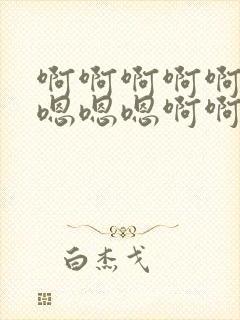 啊啊啊啊啊
嗯嗯嗯啊啊
白杰戈